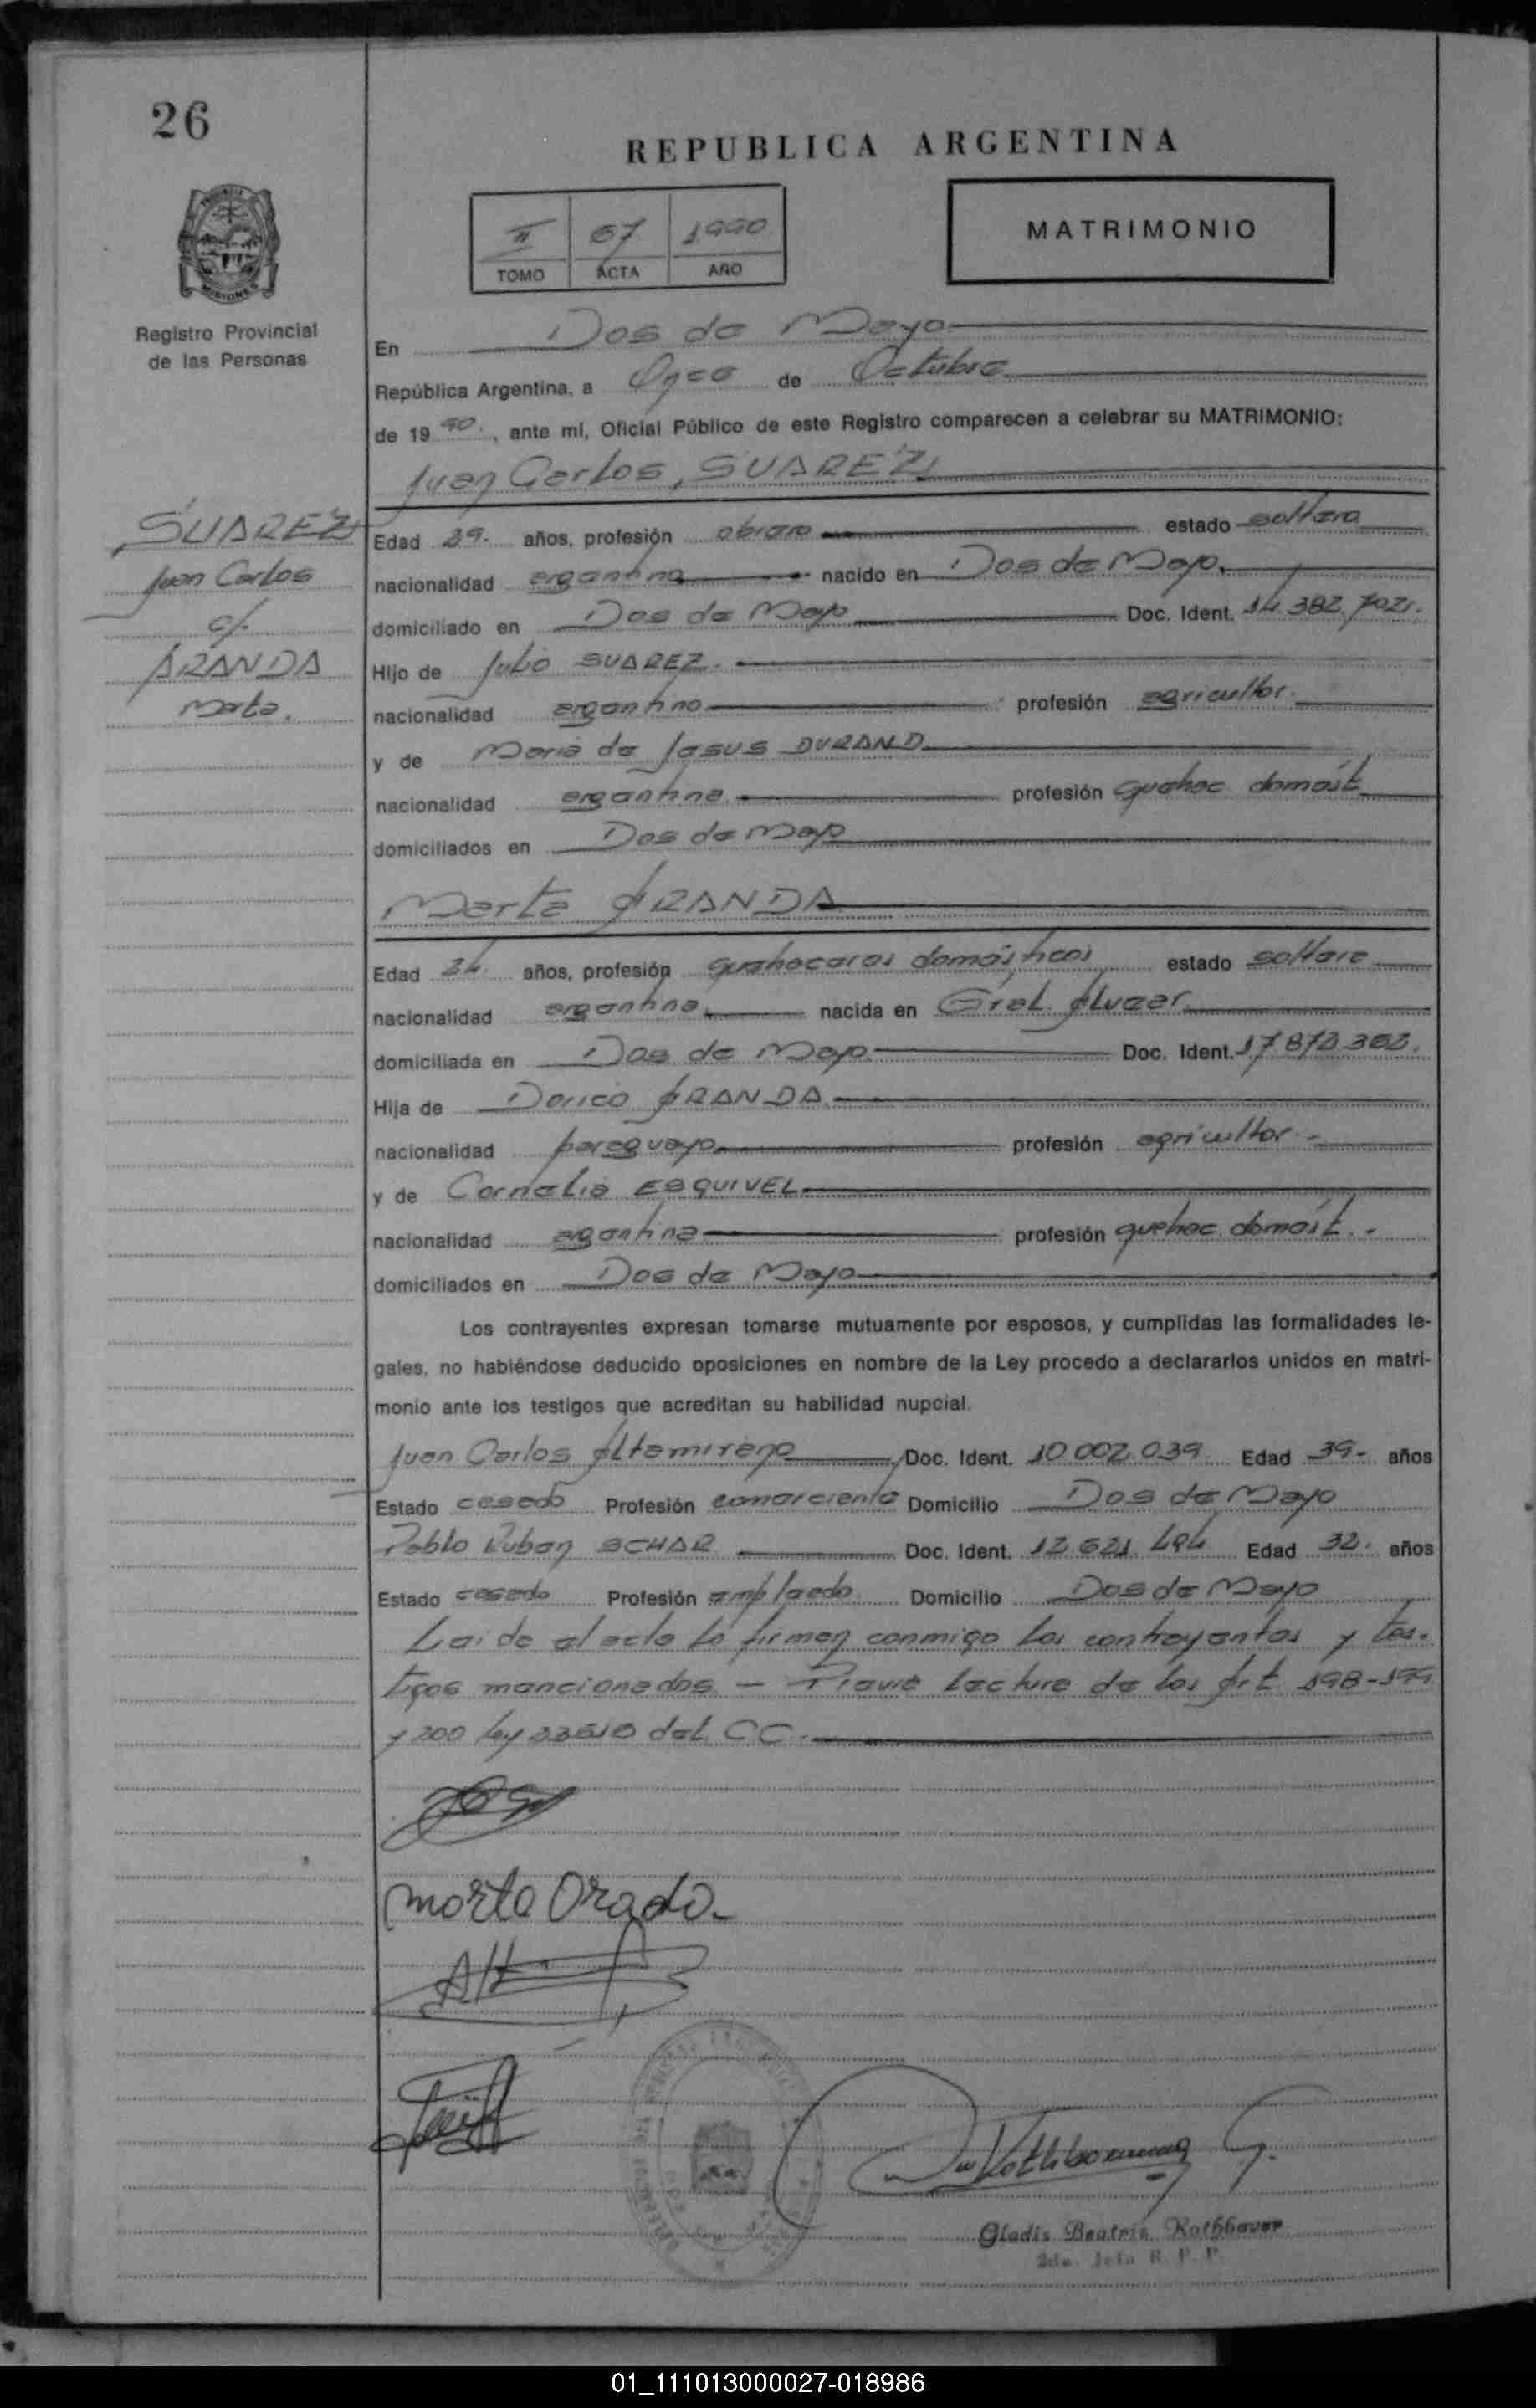 26
REPUBLICA ARGENTINA
II 67 1990
TOMO ACTA AÑO
MATRIMONIO
MISIONES
Registro Provincial
de las Personas
En Dos de Mayo
República Argentina, a Once de Octubre
de 1990, ante mí, Oficial Público de este Registro comparecen a celebrar su MATRIMONIO:
Juan Carlos, SUAREZ
SUAREZ
Juan Carlos
c/.
ARANDA
Marta.
Edad 29. años, profesión obrero estado soltero
nacionalidad argentina nacido en Dos de Mayo.
domiciliado en Dos de Mayo Doc. Ident. 14.382.7021.
Hijo de Julio SUAREZ.
nacionalidad argentino profesión agricultor.
y de Maria de Jesus DURAND
nacionalidad argentina. profesión quehac. domést.
domiciliados en Dos de Mayo
Marta ARANDA
Edad 24. años, profesión quehaceres domésticos estado soltera
nacionalidad argentina. nacida en Gral. Alvear
domiciliada en Dos de Mayo Doc. Ident.
Hija de Dorico ARANDA.
nacionalidad paraguayo profesión agricultor.-
y de Cornelia ESQUIVEL
nacionalidad argentina profesión quehac. domést. -
domiciliados en Dos de Mayo
Los contrayentes expresan tomarse mutuamente por esposos, y cumplidas las formalidades le-
gales, no habiéndose deducido oposiciones en nombre de la Ley procedo a declararlos unidos en matri-
monio ante los testigos que acreditan su habilidad nupcial.
Juan Carlos Altamirano Doc. Ident. 10.002.039 Edad 39.- años
Estado casado Profesión comerciante Domicilio Dos de Mayo
Pablo Ruben SCHAR Doc. Ident. 12.621.494 Edad 32. años
Estado casado Profesión empleado Domicilio Dos de Mayo
Leída el acta la firman conmigo los contrayentes y tes-
tigos mencionados. - Previa lectura de los Art. 198-199
y 200 ley 23515 del C C.
Marta Orada.
Gladis Beatriz Rothbauer
2da. Jefa R. P. P.
01_111013000027-018986